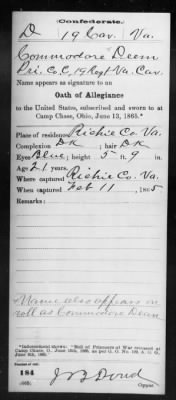 Confederate.
D 19 Cav. Va.
Commodore Deem
Pri. Co. C, 19 Regt Va. Cav.
Name appears as signature to an
Oath of Allegiance
to the United States, subscribed and sworn to at
Camp Chase, Ohio, June 13, 1865.*
Place of residence Richie Co. Va.
Complexion Dk; hair Dk
Eyes Blue; height 5 ft. 9 in.
Age 21 years.
Where captured Richie Co. Va.
When captured Feb 11, 1865
Remarks:
Name also appears on
roll as Commodore Dean
*Indorsement shows: "Roll of Prisoners of War released at
Camp Chase, O., June 13th, 1865, as per G. O. No. 109, A. G. O.,
June 6th, 1865."
Number of roll:
184
(665)
Copyist.